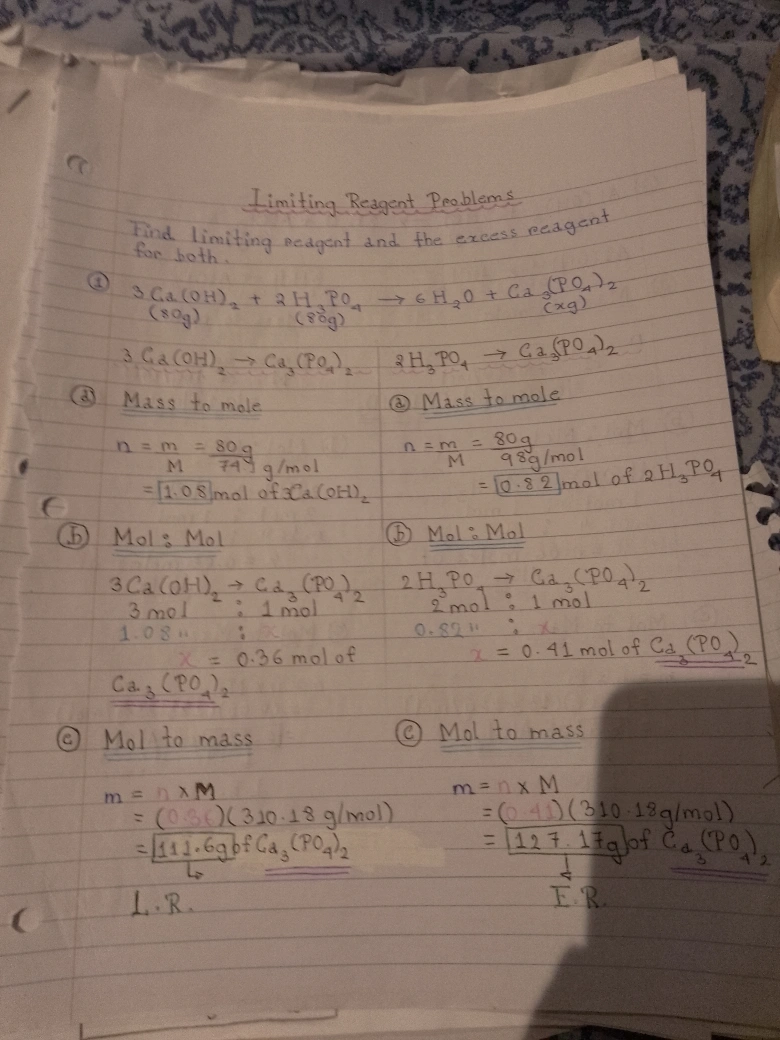 Limiting Reagent Problems
Find limiting reagent and the excess reagent
for both.
① 3Ca(OH)₂ + 2H₃PO₄ → 6H₂O + Ca₃(PO₄)₂
(80g) (80g) (xg)
3Ca(OH)₂ → Ca₃(PO₄)₂ 2H₃PO₄ → Ca₃(PO₄)₂
ⓐ Mass to mole
n = m/M = 80g/74 g/mol
= 1.08 mol of 3Ca(OH)₂
ⓑ Mol : Mol
3Ca(OH)₂ → Ca₃(PO₄)₂
3 mol : 1 mol
1.08 " : x
x = 0.36 mol of
Ca₃(PO₄)₂
ⓒ Mol to mass
m = n x M
= (0.36)(310.18 g/mol)
= 111.6g of Ca₃(PO₄)₂
L.R.
ⓐ Mass to mole
n = m/M = 80g/98g/mol
= 0.82 mol of 2H₃PO₄
ⓑ Mol : Mol
2H₃PO₄ → Ca₃(PO₄)₂
2 mol : 1 mol
0.82 " : x
x = 0.41 mol of Ca₃(PO₄)₂
ⓒ Mol to mass
m = n x M
= (0.41)(310.18g/mol)
= 127.17g of Ca₃(PO₄)₂
E.R.